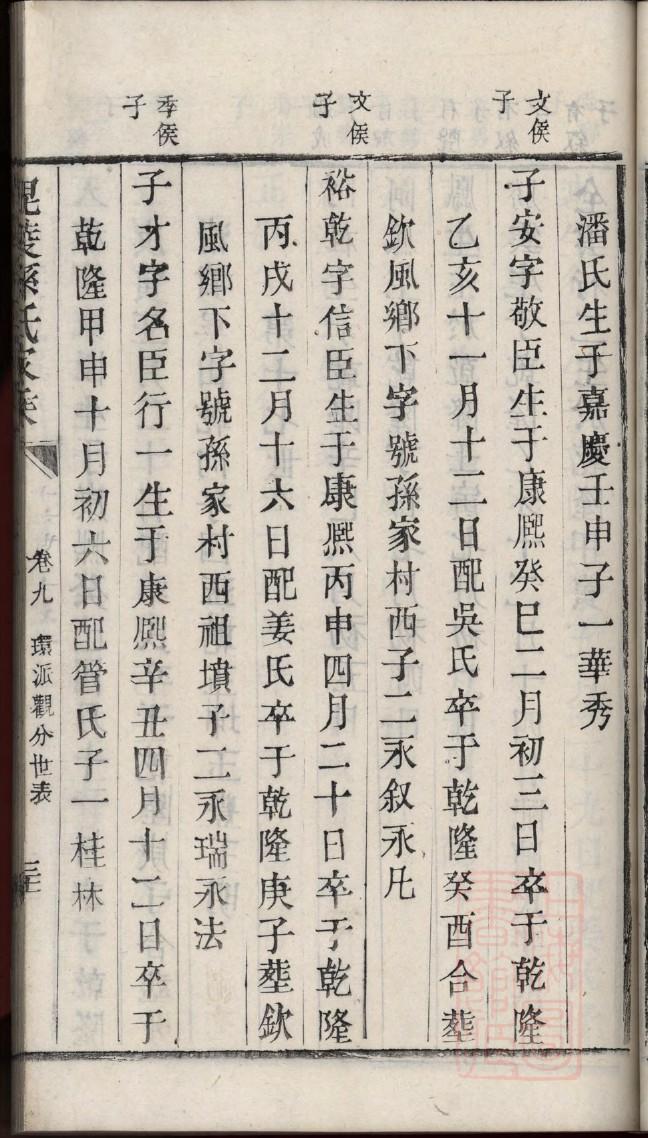 潘氏生于嘉慶壬申子一華秀
文侯子
子安字敬臣生于康熈癸巳二月初三日卒于乾隆
乙亥十一月十二日配吳氏卒于乾隆癸酉合塟
欽風鄉下字號孫家村西子二永叙永凡
文侯子
裕乾字信臣生于康熈丙申四月二十日卒于乾隆
丙戌十二月十六日配姜氏卒于乾隆庚子塟欽
風鄉下字號孫家村西祖墳子二永瑞永法
季侯子
子才字名臣行一生于康熈辛丑四月十二日卒于
乾隆甲申十月初六日配管氏子一桂林
毘陵孫氏家乗
卷九 環派觀分世表